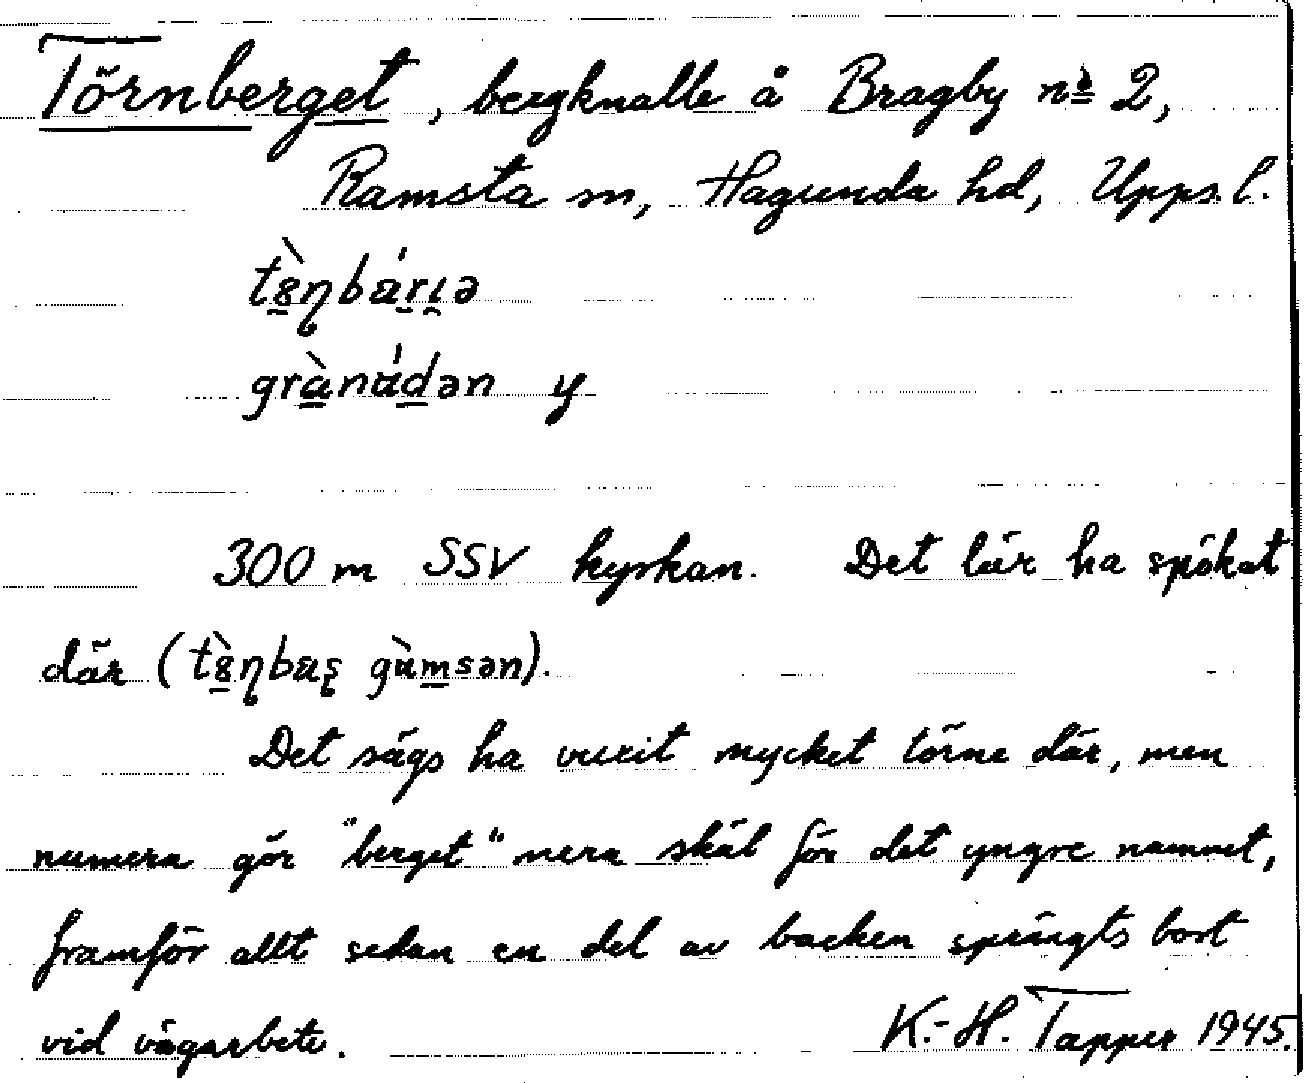 Törnberget, bergknalle å Bragby nr 2,
Ramsta sn, Hagunda hd, Uppsl.
300 m SSV kyrkan. Det lär ha spökat
där (
Det sägs ha vuxit mycket törne där, men
numera gör "berget" mera skäl för det yngre namnet,
framför allt sedan en del av backen sprängts bort
vid vägarbete. K.-H. Tapper 1945.